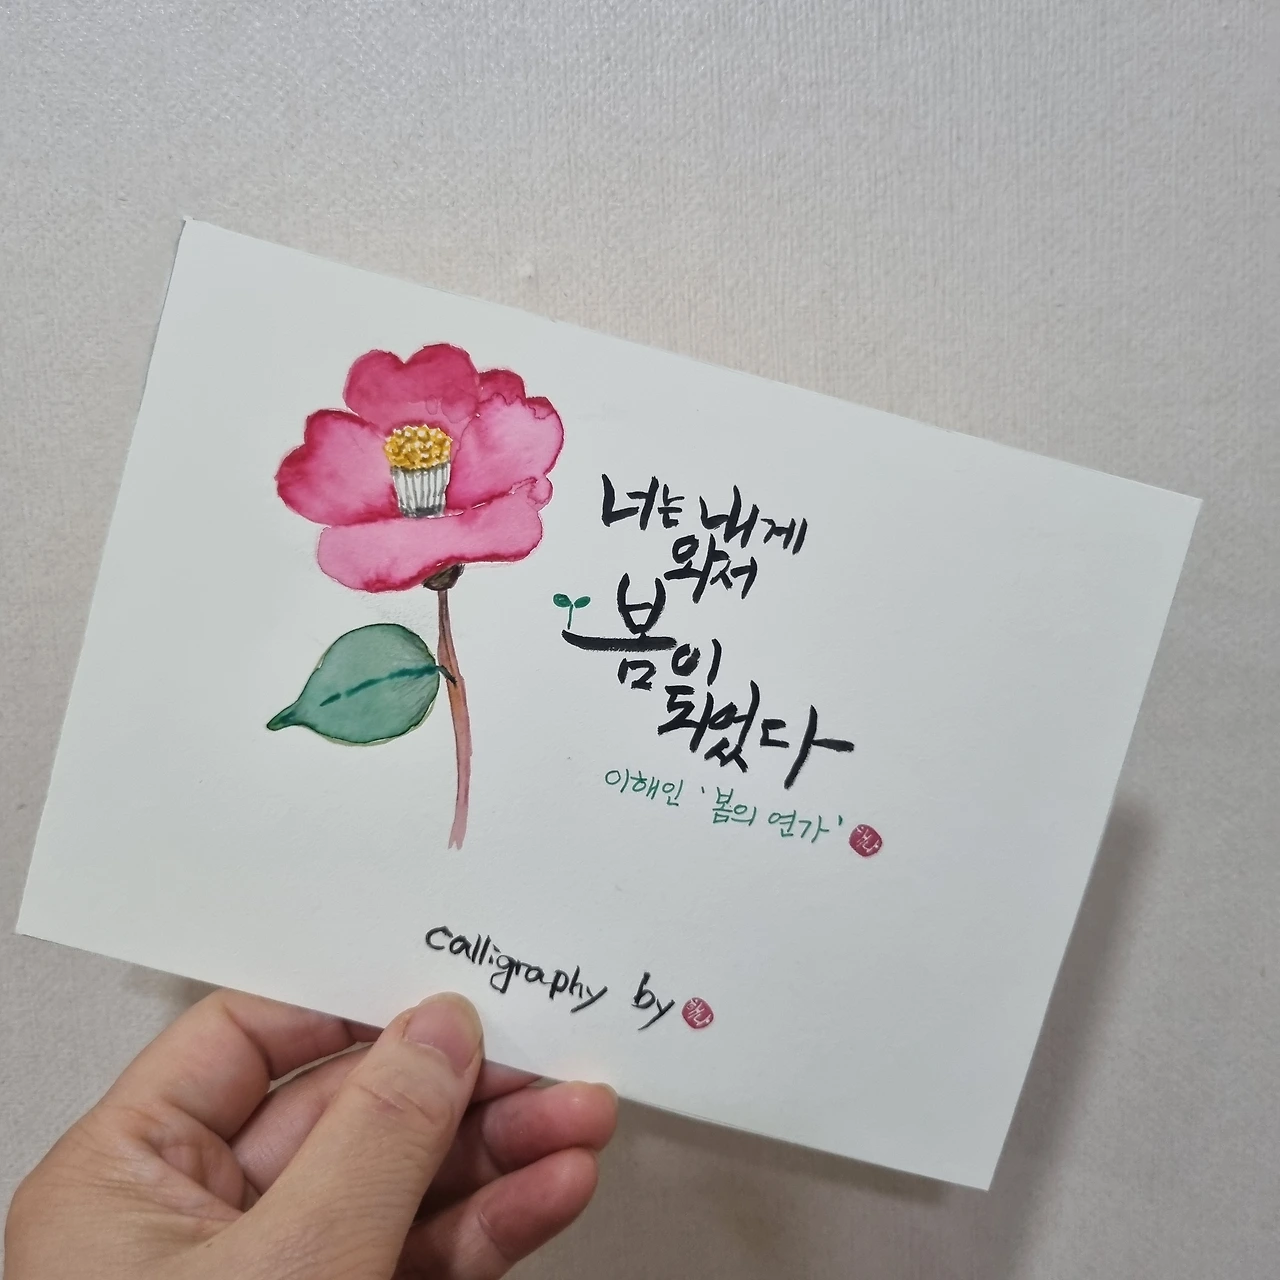 너는 내게
와서
봄이
되었다
이해인 '봄의 연가'
calligraphy by